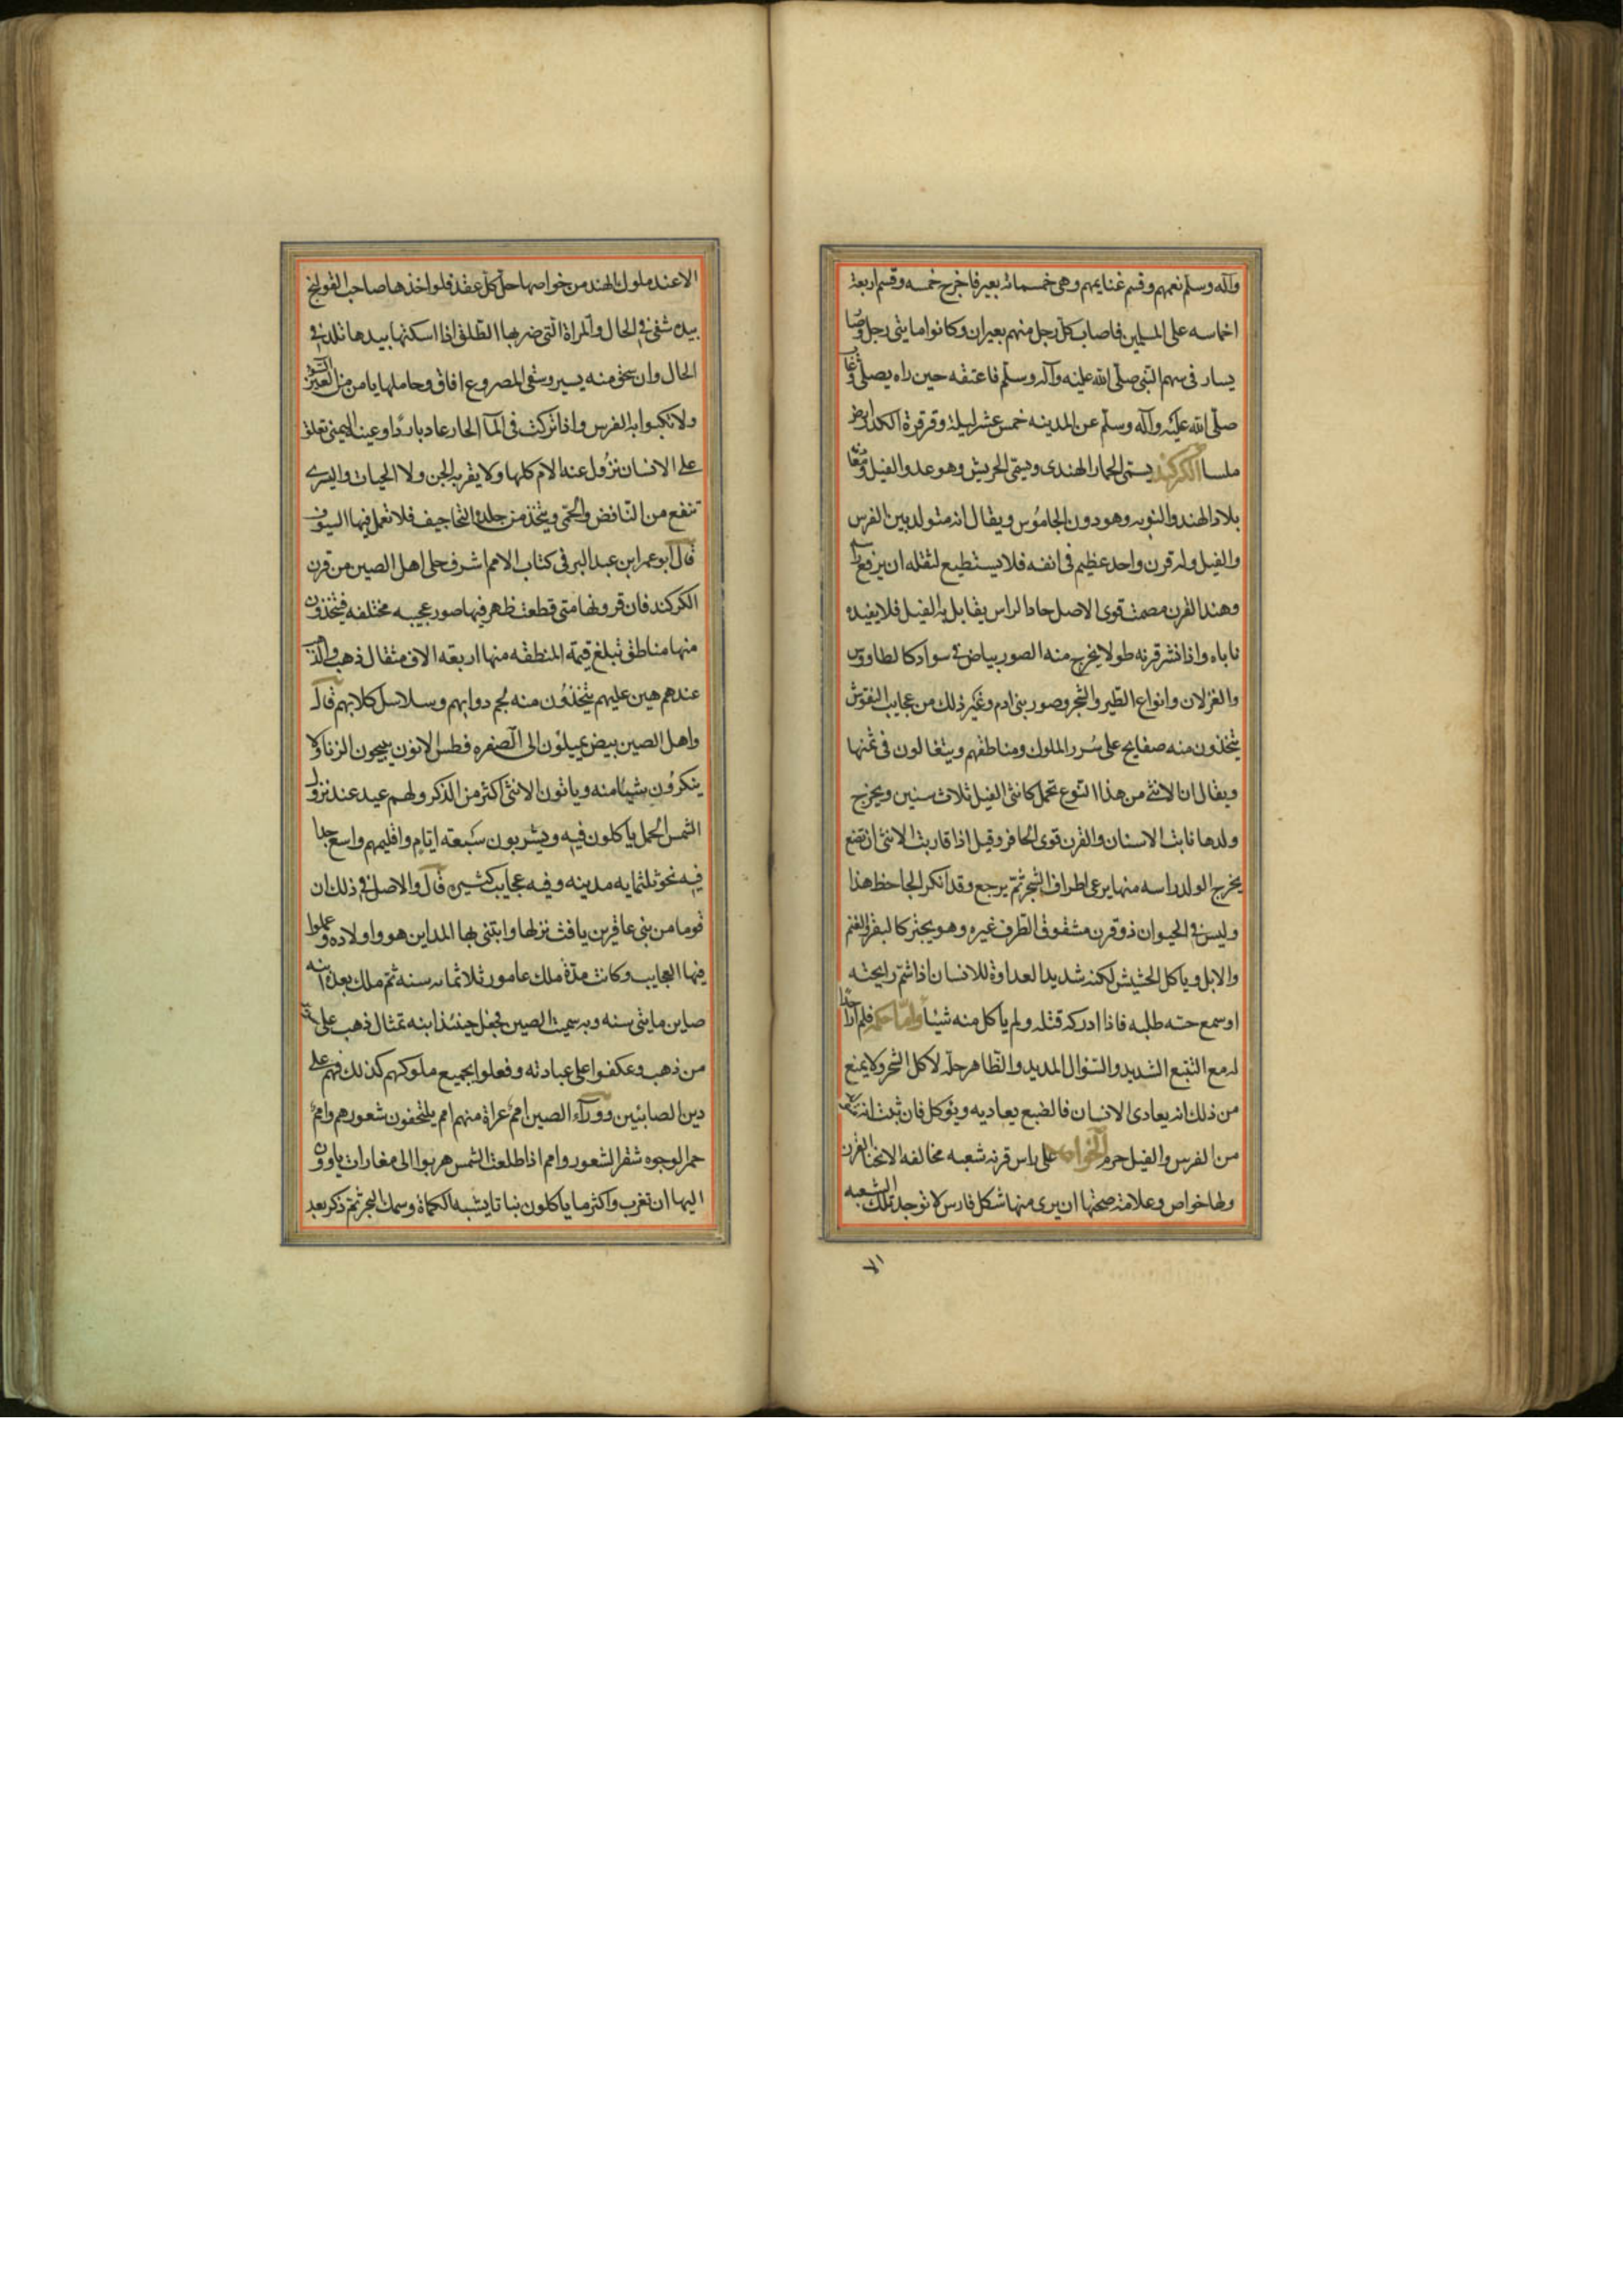 وآله وسلم نعمهم وقسم غنايمهم وهى خمسمائة بعير فاخرج خمسه وقسم اربعة
اخماسه على المسلمين فاصاب كل رجل منهم بعيران وكانوا مايتى رجل وصا
يسار فى سهم النبى صلى الله عليه وآله وسلم فاعتقه حين راه يصلى وغا
صلى الله عليه وآله وسلم عن المدينه خمس عشر ليلة وقرقرة الكدر ارض
ملسا الكركند يسمى الحمار الهندى ويسمى الحريش وهو عدو الفيل ومعا
بلاد الهند والنوبه وهو دون الجاموس ويقال انه متولد بين الفرس
والفيل وله قرن واحد عظيم فى انفه فلا يستطيع لثقله ان يرفع راسه
وهذا القرن مصمت قوى الاصل حاد الراس يقابل به الفيل فلا يفيده
ناباه واذا نشر قرنه طولا يخرج منه الصور بياض فى سواد كالطاووس
والغزلان وانواع الطير والشجر وصور بنى ادم وغير ذلك من عجايب النقوش
يتخذون منه صفايح على سرر الملوك ومناطقهم ويتغالون فى ثمنها
ويقال ان الانثى من هذا النوع تحمل كانثى الفيل ثلاث سنين ويخرج
ولدها نابت الاسنان والقرن قوى الحافر وقيل اذا قاربت الانثى ان تضع
يخرج الولد راسه منها يرعى اطراف الشجر ثم يرجع وقد انكر الجاحظ هذا
وليس فى الحيوان ذو قرن مشقوق الظرف غيره وهو يجتر كالبقر والغنم
والابل وياكل الحشيش لكنه شديد العداوة للانسان اذا شم رايحته
او سمع حسه طلبه فاذا ادركه قتله ولم ياكل منه شيئا واما حكمه فلم ار احدا
له مع التتبع الشديد والسؤال المديد والظاهر حله لاكل الشجر ولا يمنع
من ذلك انه يعادى الانسان فالضبع يعاديه ويؤكل فان ثبت انه
من الفرس والفيل حرم الخواص على راس قرنه شعبه مخالفه الانحنا القرن
ولها خواص وعلامة صحتها ان يرى منها شكل فارس لا توجد تلك الشعبه
الا
الا عند ملوك الهند من خواصها حل كل عقد فلو اخذها صاحب القولنج
بيده شفى فى الحال والمراة التى ضربها الطلق اذا اسكتها بيدها تلد فى
الحال وان سحق منه يسير وسقى المصروع افاق وحاملها يامن من العين السو
ولا تكبوا به الفرس واذا تركت فى المآ الحار عاد باردا وعينه اليمنى تعلق
على الانسان تزول عنه الالام كلها ولا يقربه الجن ولا الحيات واليسرى
تنفع من النافض والحمى ويتخذ من جلده التجاجيف فلا تعمل فيها السيوف
قال ابو عمر ابن عبد البر فى كتاب الامم اشرف حلى اهل الصين من قرن
الكركند فان قرونها متى قطعت ظهر فيها صور عجيبه مختلفه فيتخذون
منها مناطق تبلغ قيمة المنطقه منها اربعة الاف مثقال ذهب والذهب
عندهم هين عليهم يتخذون منه لجم دوابهم وسلاسل كلابهم قال
واهل الصين بيض يميلون الى الصفره فطس الانوف يبيحون الزنا ولا
ينكرون شيئا منه وياتون الانثى اكثر من الذكر ولهم عيد عند نزول
الشمس الحمل ياكلون فيه ويشربون سبعة ايام واقليمهم واسع جدا
فيه نحو ثلثمايه مدينه وفيه عجايب كثيره قال والاصل فى ذلك ان
قوما من بنى عاقر بن يافث نزلها وابتنى بها المداين هو واولاده وعملوا
فيها العجايب وكانت مدة ملك عامور ثلاثمائه سنه ثم ملك بعده ابنه
صاين مايتى سنه وبه سميت الصين فجعل حينئذ ابنه تمثال ذهب على
من ذهب وعكفوا على عبادته وفعلوا بجميع ملوكهم كذلك فهم على
دين الصابئين ووراء الصين امم عراة منهم امم يلتحفون شعورهم وامم
حمر الوجوه شقر الشعور وامم اذا طلعت الشمس هربوا الى مغارات ياوون
اليها ان تغرب واكثر ما ياكلون نباتا يشبه الكماة وسمك البحر ثم ذكر بعد